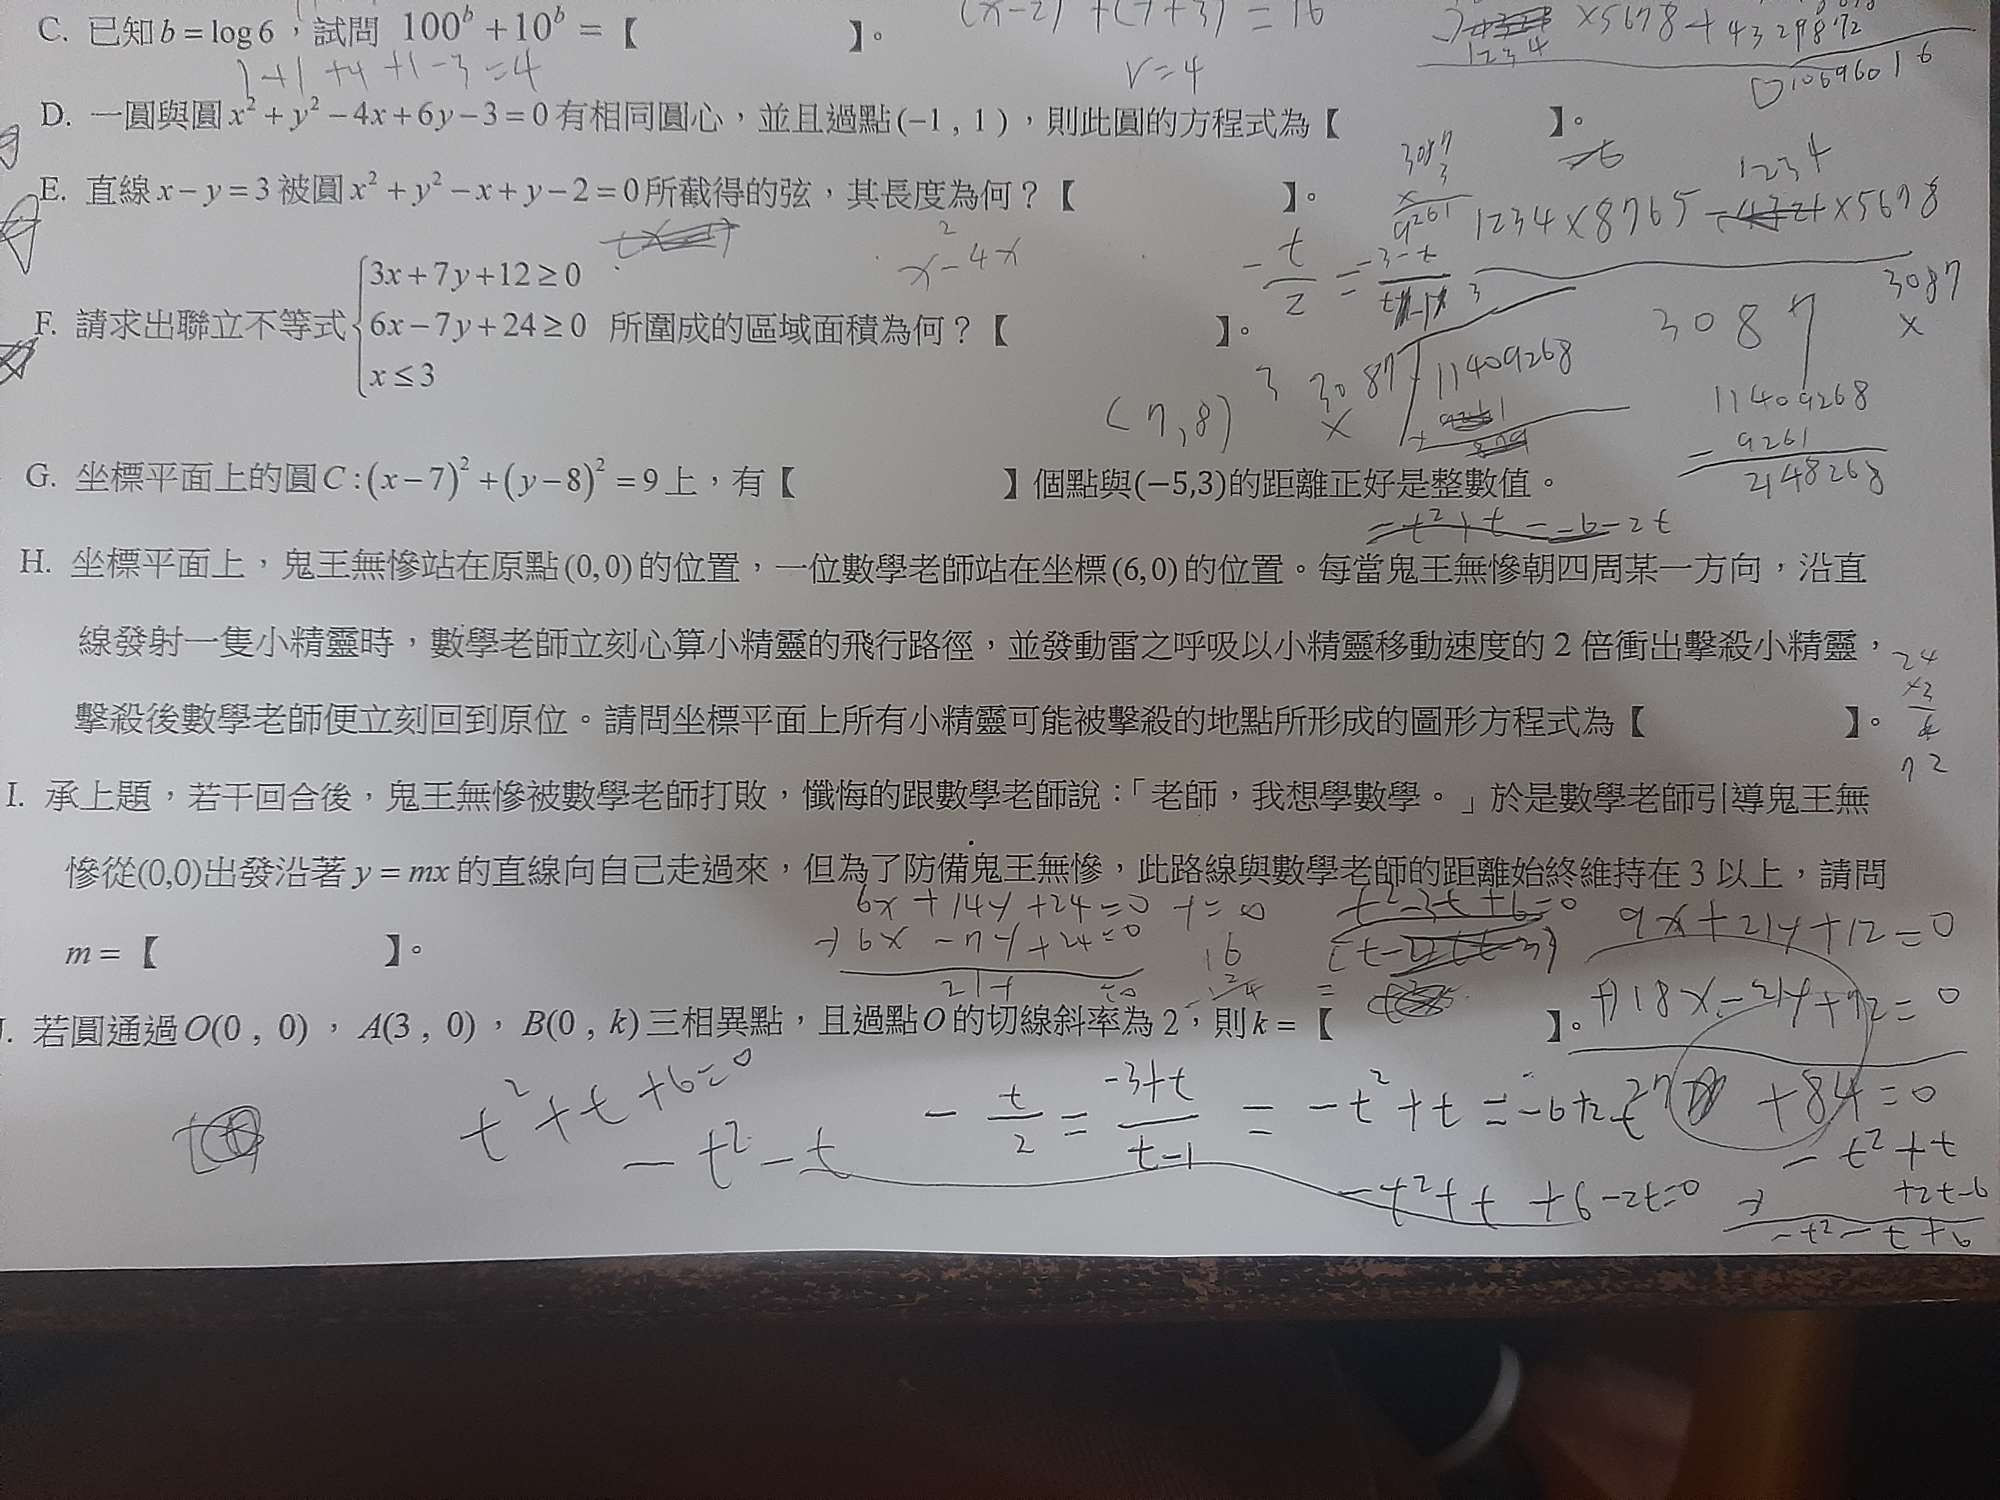 (x-2)² + (y+3)² = 16
×5678 + 43298872
1234
C. 已知 b = log 6，試問 100^b + 10^b = 【 】。
1+1+4+1-3=4
r=4
1069601 6
D. 一圓與圓 x² + y² − 4x + 6y − 3 = 0 有相同圓心，並且過點(−1 , 1)，則此圓的方程式為【 】。
3087
3
×
9261
1234
E. 直線 x − y = 3 被圓 x² + y² − x + y − 2 = 0 所截得的弦，其長度為何？【 】。
1234×8765 - ×5678
x²-4x
3087
×
F. 請求出聯立不等式 { 3x + 7y + 12 ≥ 0
6x − 7y + 24 ≥ 0 所圍成的區域面積為何？【 】。
x ≤ 3
3087
11409268
(7,8)
11409268
9261
2148268
G. 坐標平面上的圓 C : (x − 7)² + (y − 8)² = 9 上，有【 】個點與(−5,3)的距離正好是整數值。
= -t²+t = -6-2t
H. 坐標平面上，鬼王無慘站在原點(0,0)的位置，一位數學老師站在坐標(6,0)的位置。每當鬼王無慘朝四周某一方向，沿直
線發射一隻小精靈時，數學老師立刻心算小精靈的飛行路徑，並發動雷之呼吸以小精靈移動速度的 2 倍衝出擊殺小精靈，
24
×3
72
擊殺後數學老師便立刻回到原位。請問坐標平面上所有小精靈可能被擊殺的地點所形成的圖形方程式為【 】。
I. 承上題，若干回合後，鬼王無慘被數學老師打敗，懺悔的跟數學老師說：「老師，我想學數學。」於是數學老師引導鬼王無
慘從(0,0)出發沿著 y = mx 的直線向自己走過來，但為了防備鬼王無慘，此路線與數學老師的距離始終維持在 3 以上，請問
6x+14y+24=0
t²-3t+6=0
9x+21y+12=0
6x-7y+24=0
m = 【 】。
+)18x-21y+72=0
J. 若圓通過 O(0 , 0)，A(3 , 0)，B(0 , k)三相異點，且過點 O 的切線斜率為 2，則 k = 【 】。
t²+t+6=0
-t/2 = (-3+t)/(t-1) = -t²+t = -6+2t
27 +84=0
-t²-t
-t²+t
-t²+t+6-2t=0
+2t-6
-t²-t+6